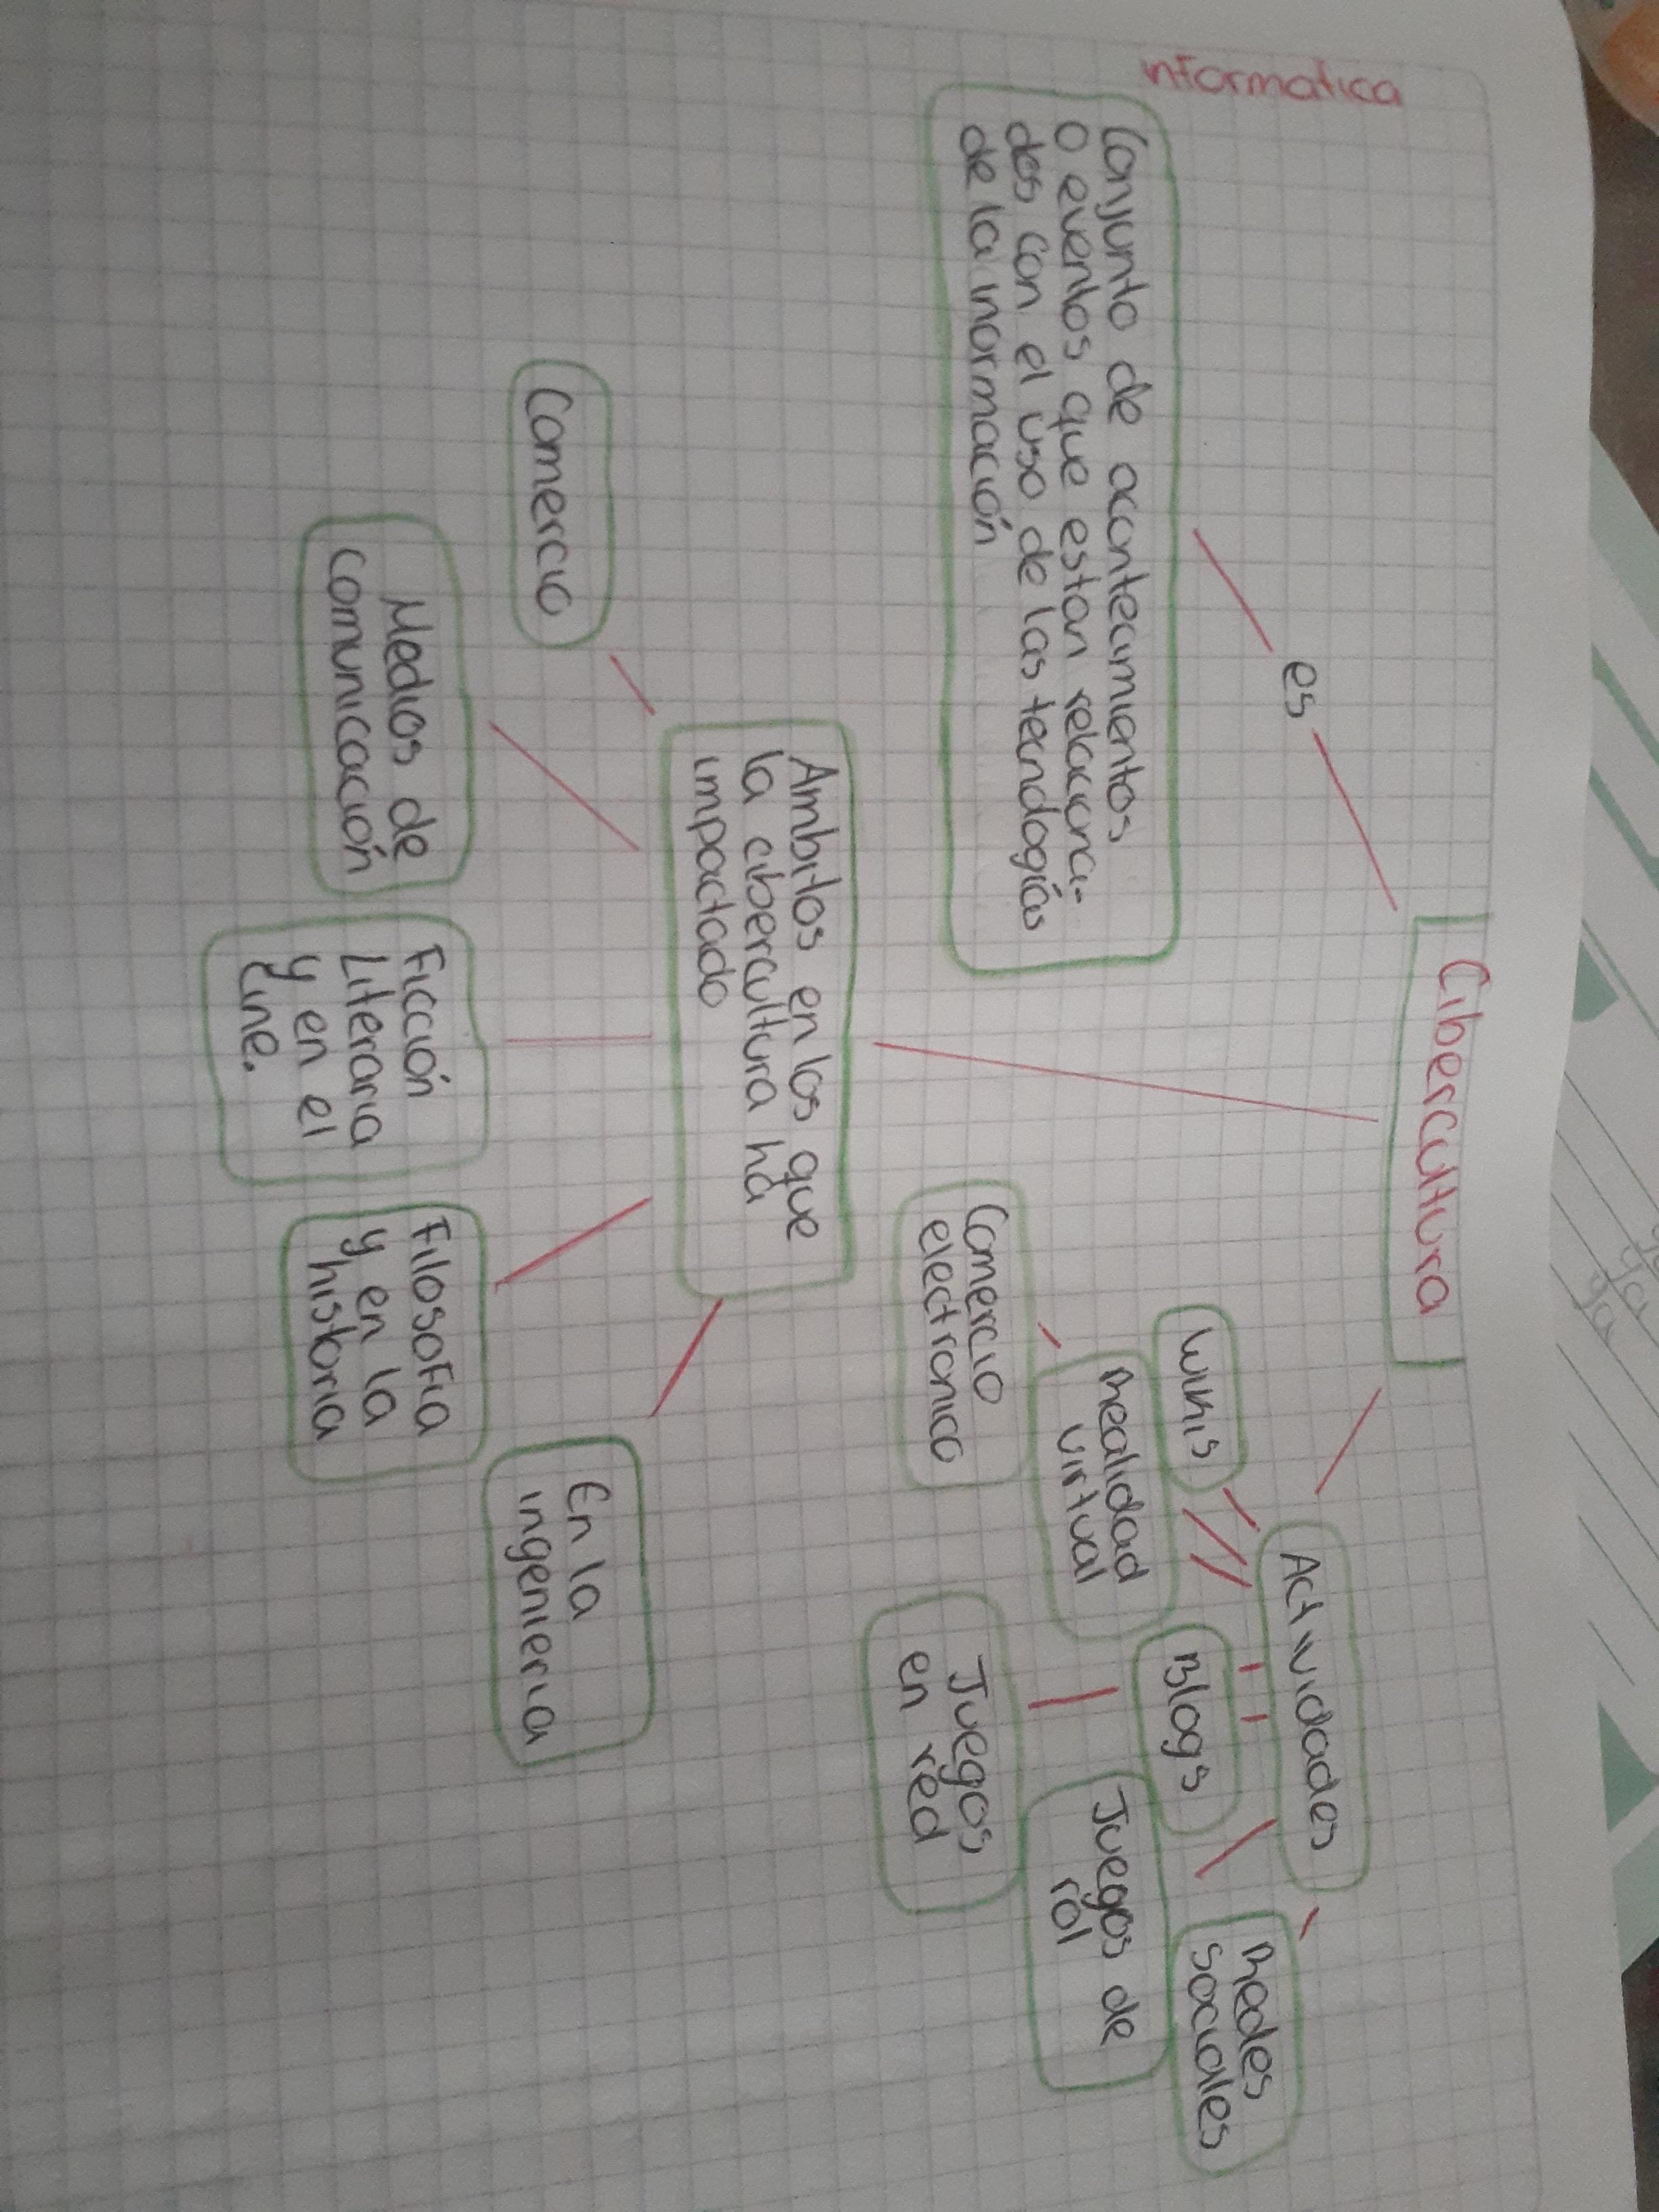 informatica
Cibercultura
es
Conjunto de acontecimientos
o eventos que estan relaciona-
dos con el uso de las tecnologías
de la inormación
Actividades
Redes
sociales
Wikis
Blogs
Realidad
virtual
Juegos de
rol
Comercio
electronico
Juegos
en red
Ambitos en los que
la cibercultura ha
impactado
Comercio
Medios de
comunicación
Ficción
Literaria
y en el
cine.
Filosofia
y en la
historia
En la
ingenieria